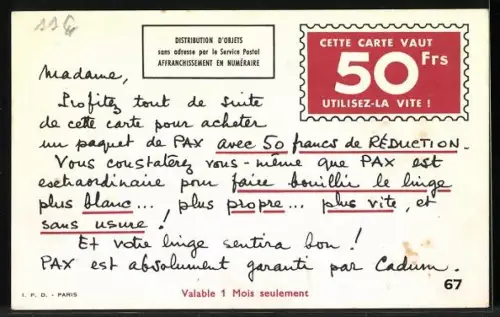 DISTRIBUTION D'OBJETS
sans adresse par le Service Postal
AFFRANCHISSEMENT EN NUMÉRAIRE
CETTE CARTE VAUT
50 Frs
UTILISEZ-LA VITE !
Madame,
Profitez tout de suite
de cette carte pour acheter
un paquet de PAX avec 50 francs de RÉDUCTION.
Vous constaterez vous-même que PAX est
extraordinaire pour faire bouillir le linge
plus blanc... plus propre... plus vite, et
sans usure !
Et votre linge sentira bon !
PAX est absolument garanti par Cadum.
67
I. P. D. - PARIS
Valable 1 Mois seulement